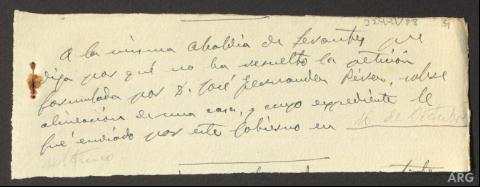 A la misma Alcaldía de Levantes que
diga por qué no ha resuelto la petición
formulada por D. José Fernandez Pérez, sobre
alineación de una casa, y cuyo expediente le
fué enviado por este Gobierno en 16 de
ARG